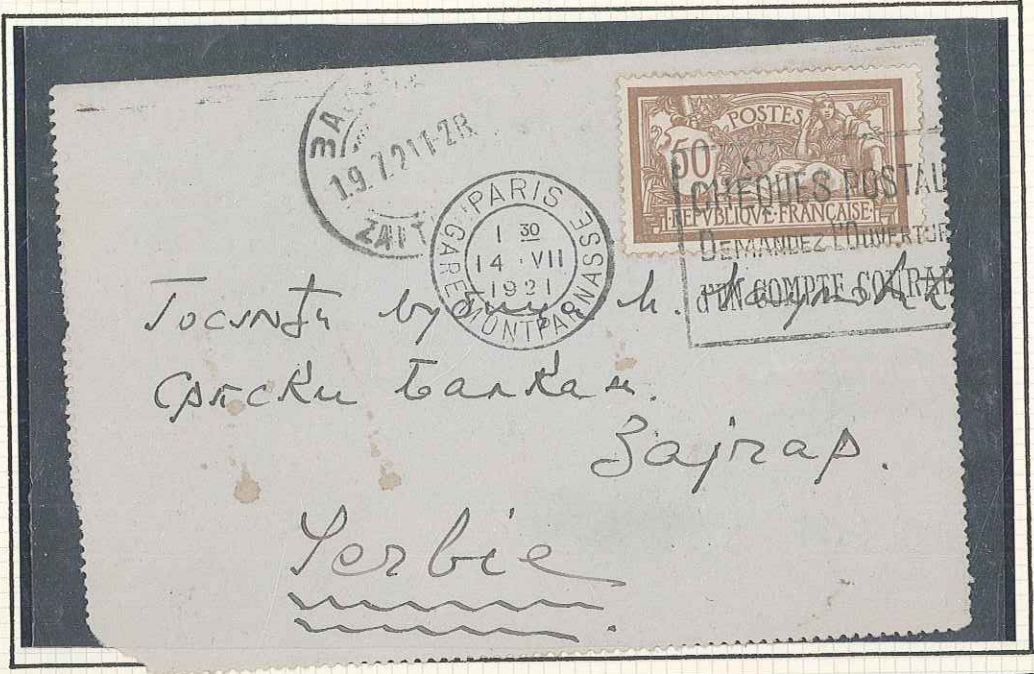 ЗА
19.7.21 1-2В
ZAIT
PARIS
GARE MONTPARNASSE
1 30
14 · VII
1921
POSTES
50
REPVBLIQVE·FRANÇAISE
CHÈQUES POSTAU
DEMANDEZ L'OUVERTUR
d'UN COMPTE COURAN
Госпођи
Српски Балкан.
Зајчар.
Serbie